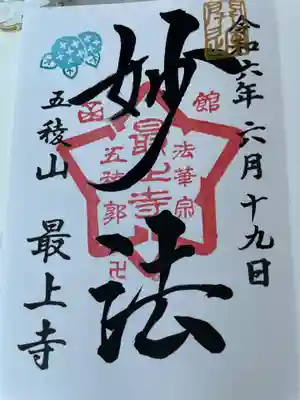 令和六年 六月十九日
妙法
函館
法華宗
最上寺
五稜郭
卍
五稜山 最上寺